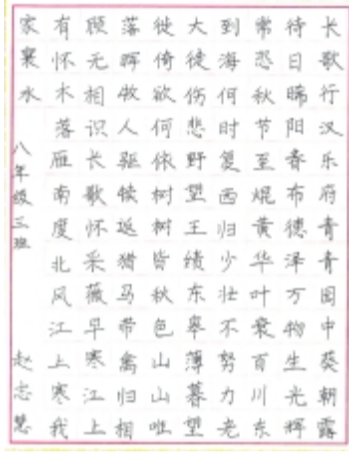 长歌行汉乐府青青园中葵朝露
待日晞阳春布德泽万物生光辉
常恐秋节至焜黄华叶衰百川东
到海何时复西归少壮不努力老
大徒伤悲野望王绩东皋薄暮望
徙倚欲何依树树皆秋色山山唯
落晖牧人驱犊返猎马带禽归相
顾无相识长歌怀采薇早寒江上
有怀木落雁南度北风江上寒我
家襄水 八年级三班 赵志慧